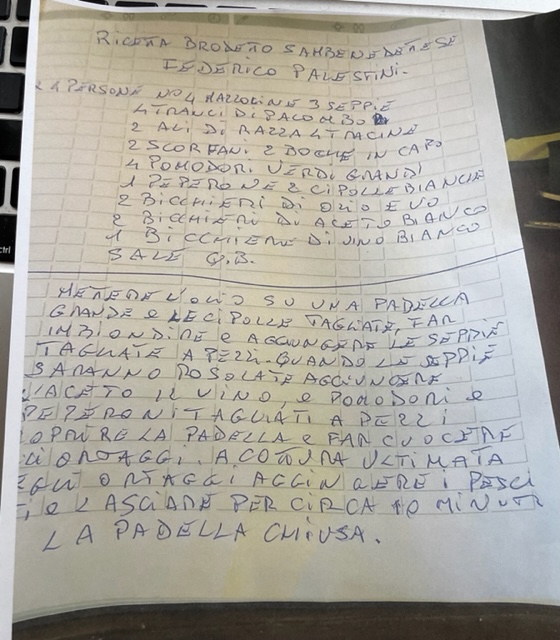 RICETTA BRODETO SAMBENEDETESE
FEDERICO PALESTINI.
4 PERSONE NO 4 MAZZOLINE 3 SEPPIE
4 TRANCI DI PALOMBO
2 ALI DI RAZZA 4 TRACINE
2 SCORFANI 2 BOCHE IN CAPO
4 POMODORI VERDI GRANDI
1 PEPERONE 2 CIPOLLE BIANCHE
2 BICCHIERI DI OLIO EVO
2 BICCHIERI DI ACETO BIANCO
1 BICCHIERE DI VINO BIANCO
SALE Q.B.
METERE L'OLIO SU UNA PADELLA
GRANDE e LE CIPOLLE TAGLIATE, FAR
IMBIONDIRE e AGGIUNGERE LE SEPPIE
TAGLIATE A PEZZI. QUANDO LE SEPPIE
SARANNO ROSOLATE AGGIUNGERE
L'ACETO IL VINO, e POMODORI e
PEPERONI TAGLIATI A PEZZI
COPRIRE LA PADELLA e FAR CUOCERE
ORTAGGI. A COTTURA ULTIMATA
ORTAGGI AGGINGERE I PESCI
LASCIARE PER CIRCA 10 MINUTI
LA PADELLA CHIUSA.
ctrl